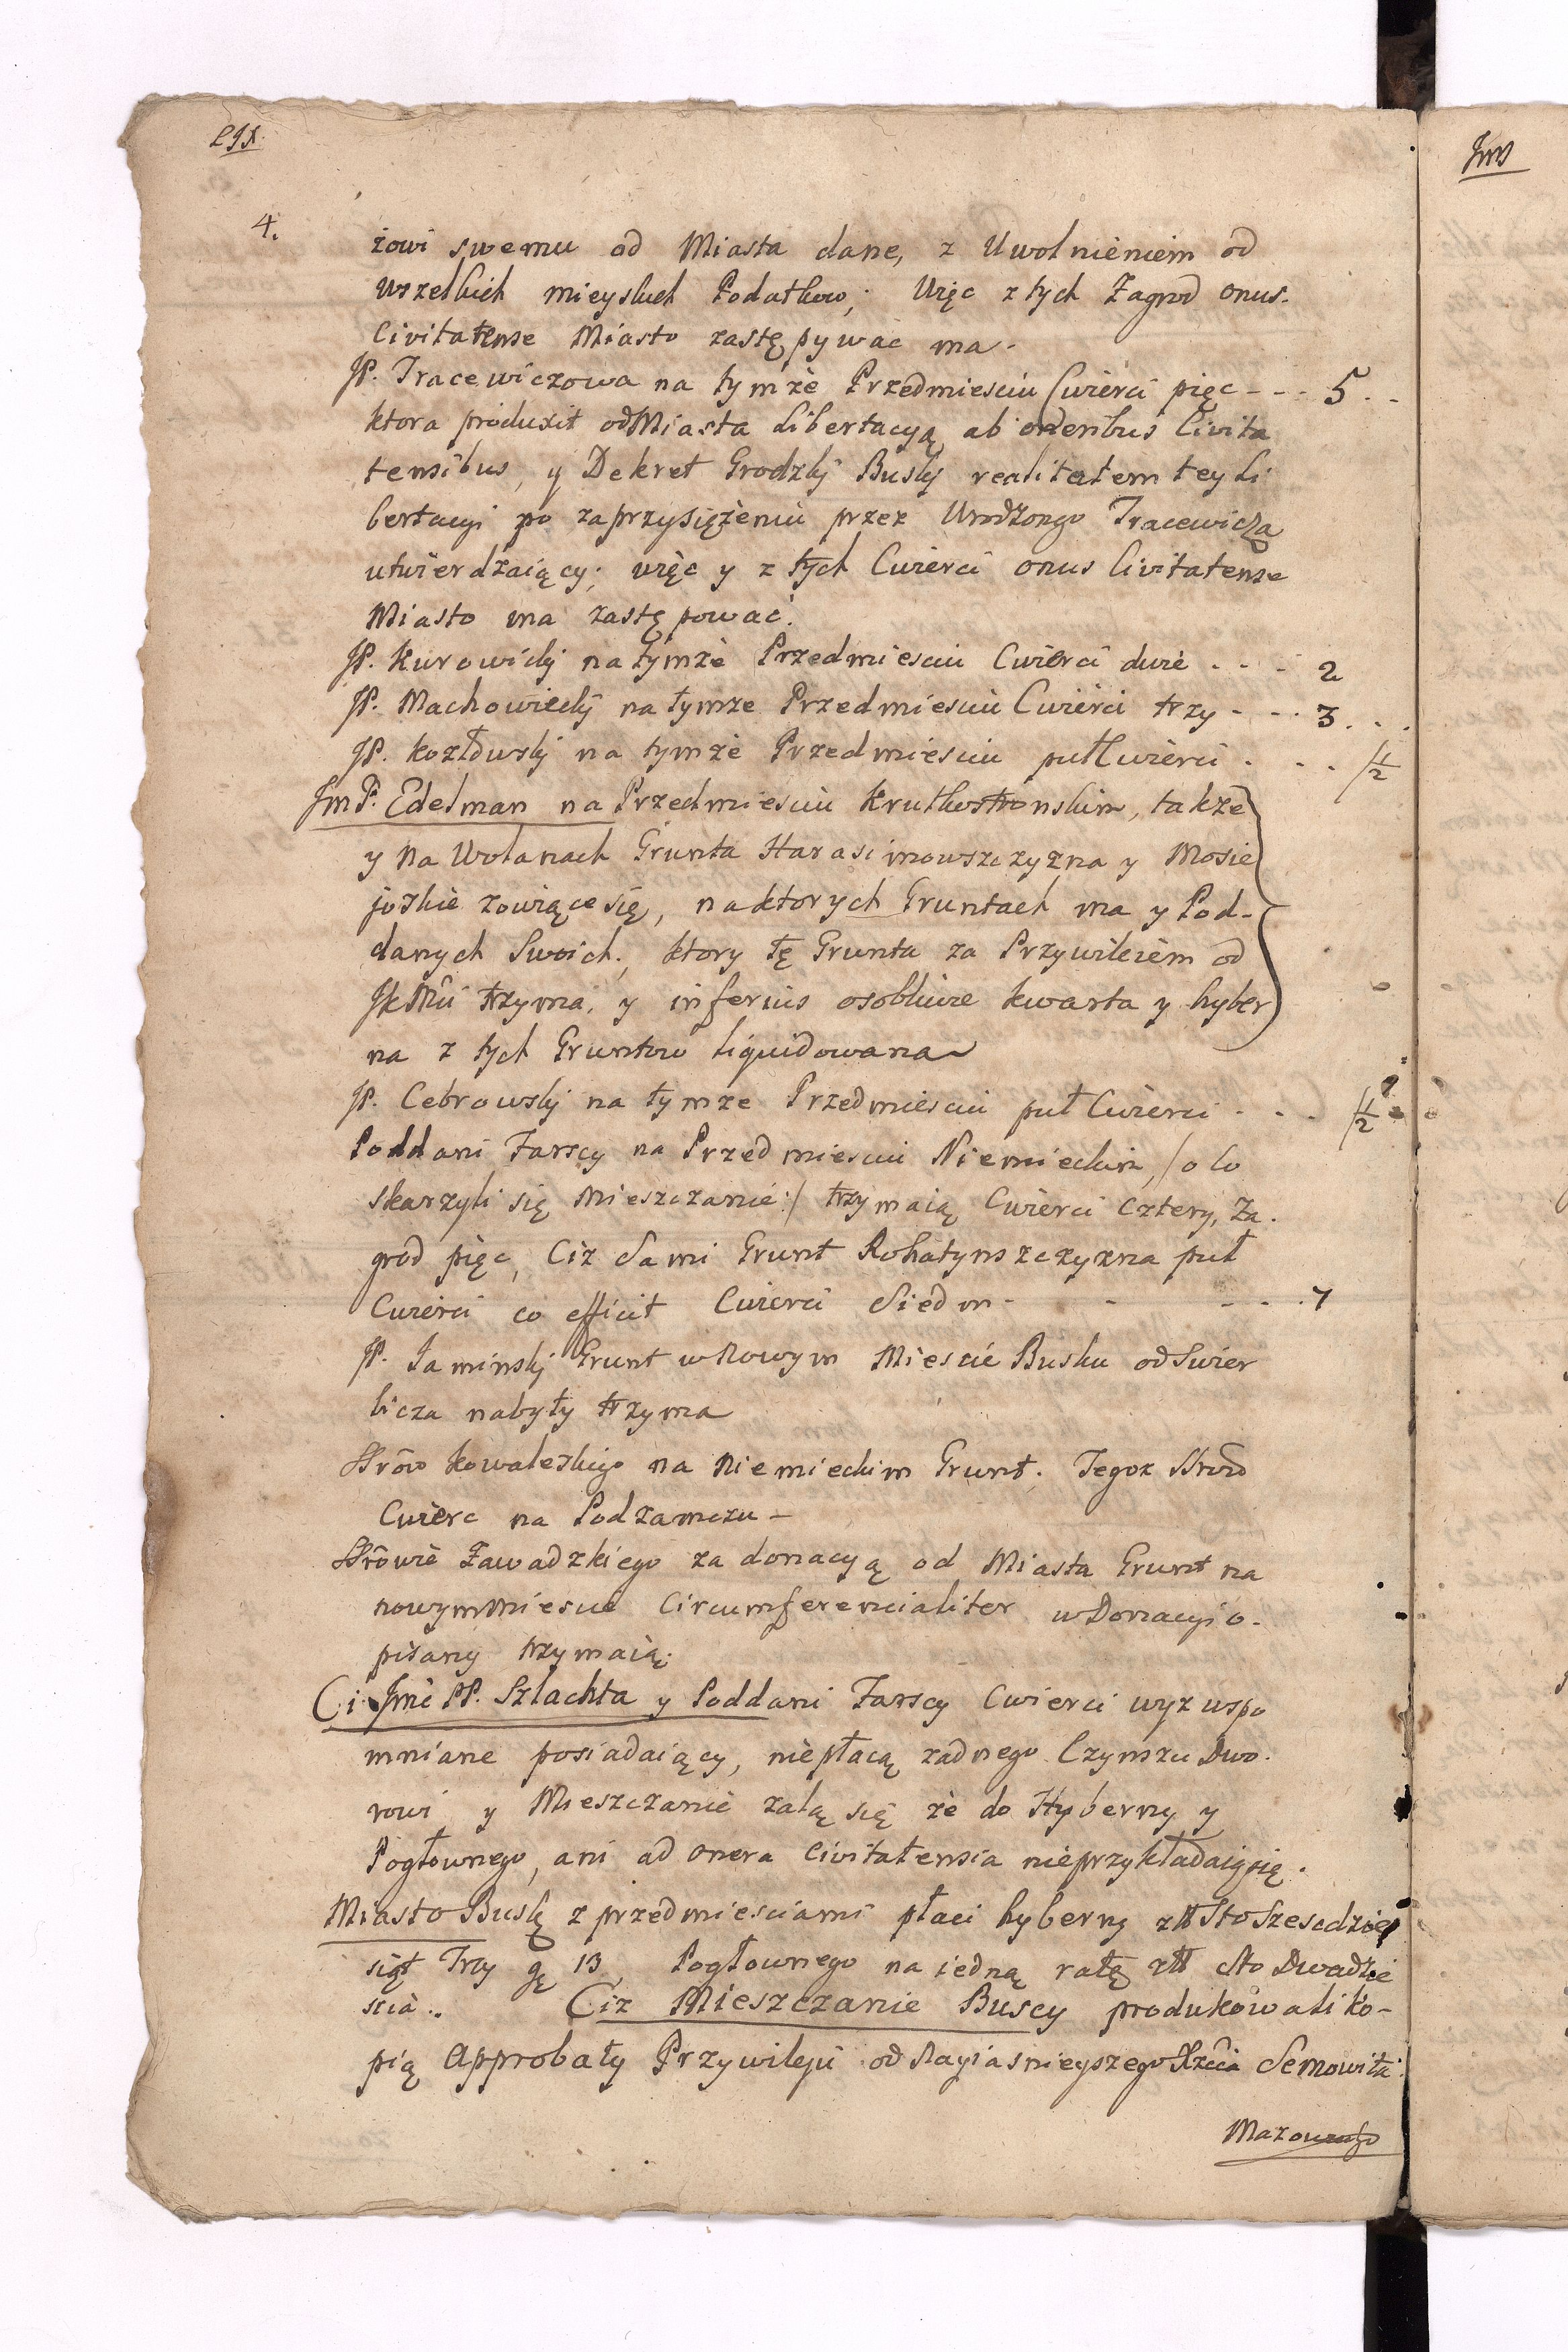 4.
żowi swemu od Miasta dane, z Uwolnieniem od
wszelkich mieyskich Podatkow; Więc z tych Zagrod onus
Civitatense Miasto zastępywać ma.
JP. Tracewiczowa na tymże Przedmiesciu Cwierci pięc - - - 5 . -
ktora produxit od Miasta Libertacyą ab oneribus Civita
tensibus, y Dekret Grodzki Buski realitatem tey Li
bertacyi po zaprzysiężeniu przez Urodzongo Tracewicza
utwierdzaiący; więc y z tych Cwierci onus Civitatense
Miasto ma zastępować.
JP. Kurowicky na tymże Przedmiesciu Cwierci dwie . - - - 2
JP. Machowiecky na tymze Przedmiesciu Cwierci trzy - - - 3 . .
JP. Kozłowsky na tymże Przedmiesciu puł Cwierci . - . . 1/2
JmP. Edelman na Przedmiesciu Krutkostronskim, także
y na Wolanach Grunta Harasimowszczyzna y Mosie
joskie zowiące się, na ktorych Gruntach ma y Pod-
danych Swoich, ktory tę Grunta za Przywileiem od
JKMci trzyma, y inferius osobliwie kwarta y hyber
na z tych Gruntow liquidowana
JP. Cebrowsky na tymze Przedmiesciu puł Cwierci - . . 1/2
Poddani Farscy na Przedmiesciu Niemieckim, /o co
skarzyli się Mieszczanie:/ trzymaią Cwierci Cztery, Za.
grod pięc, Ciż Sami Grunt Rohatynszczyzna puł
Cwierci co efficit Cwierci Siedm - - - - . 7
JP. Jaminsky Grunt w Nowym Miescie Busku od Swier
licza nabyty trzyma
SSrow Kowaleskiego na Niemieckim Grunt. Tegoz SSrow
Cwierc na Podzamczu -
SSrowie Zawadzkiego za donacyą od Miasta Grunt na
nowym Miescie Circumferencialiter w Donacyi o.
pisany trzymaią.
Ci Jmć PP. Szlachta y Poddani Farscy Cwierci wyz wspo
mniane posiadaiący, niepłacą zadnego Czynszu Dwo.
rowi y Mieszczanie zalą się że do Hyberny y
Pogłownego, ani ad onera Civitatensia nieprzykładaią się.
Miasto Busk z przedmiesciami płaci hyberny złł Sto Szescdzie
siąt Trzy gę 13, Pogłownego na iedną ratę złł Sto Dwadzie
scia.. Ciz Mieszczanie Buscy produkowali ko-
pią Approbaty Przywileju od Nayiasnieyszego Xzcia Semowita
Mazowgo